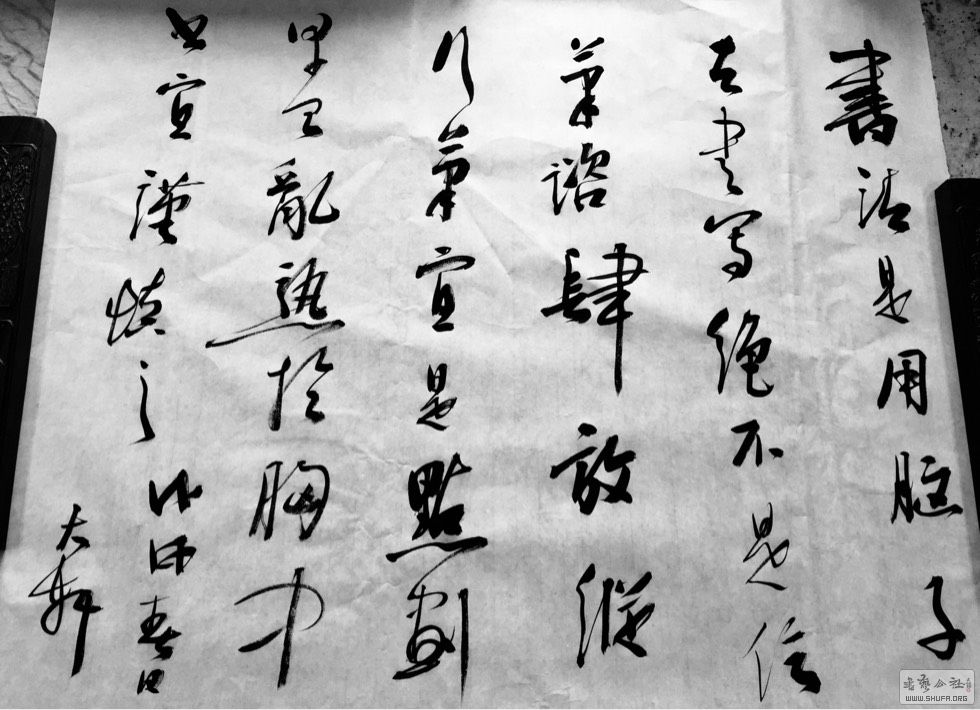 書法是用脑子
去書寫絕不是信
筆諮肆放縱
行筆宜是點劃
早已亂熟於胸中
宜謹慎之 春日
大
書藝公社
WWW.SHUFA.ORG